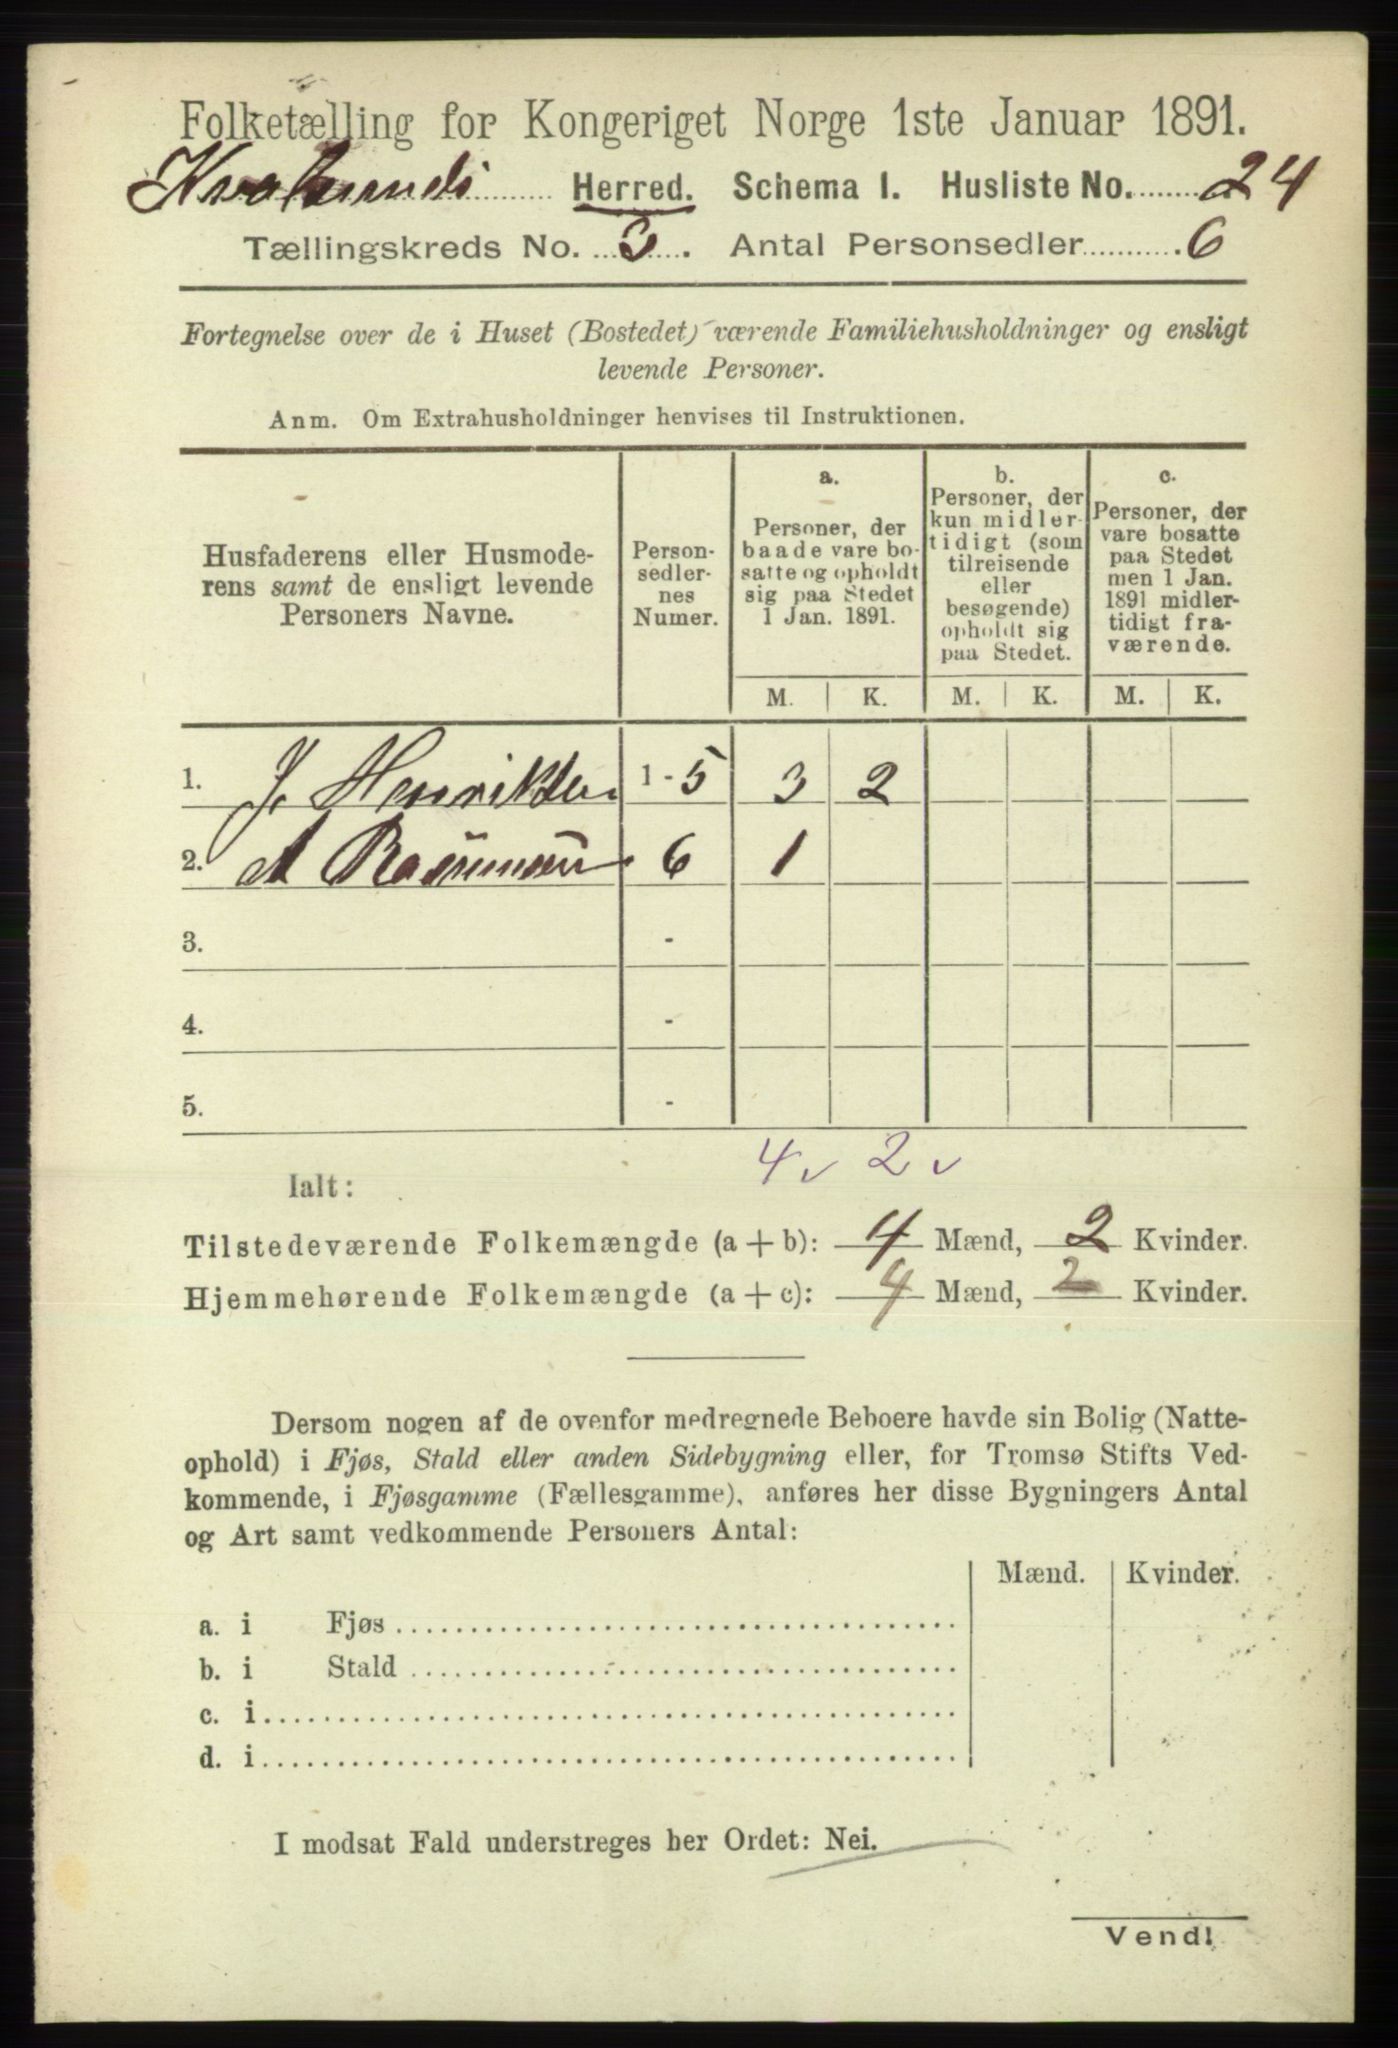 Folketælling for Kongeriget Norge 1ste Januar 1891.
Herred. Schema I. Husliste No. 24
Tællingskreds No. 3. Antal Personsedler 6
Fortegnelse over de i Huset (Bostedet) værende Familiehusholdninger og ensligt
levende Personer.
Anm. Om Extrahusholdninger henvises til Instruktionen.
Husfaderens eller Husmode-
rens samt de ensligt levende
Personers Navne.
Person-
sedler-
nes
Numer.
a.
Personer, der
baade vare bo-
satte og opholdt
sig paa Stedet
1 Jan. 1891.
b.
Personer, der
kun midler-
tidigt (som
tilreisende
eller
besøgende)
opholdt sig
paa Stedet.
c.
Personer, der
vare bosatte
paa Stedet
men 1 Jan.
1891 midler-
tidigt fra-
værende.
M. K. M. K. M. K.
1. J. Henriksen 1-5 3 2
2. A Rasmussen 6 1
3. -
4. -
5. -
4 v 2 v
Ialt:
Tilstedeværende Folkemængde (a+b): 4 Mænd, 2 Kvinder.
Hjemmehørende Folkemængde (a+c): 4 Mænd, 2 Kvinder.
Dersom nogen af de ovenfor medregnede Beboere havde sin Bolig (Natte-
ophold) i Fjøs, Stald eller anden Sidebygning eller, for Tromsø Stifts Ved-
kommende, i Fjøsgamme (Fællesgamme), anføres her disse Bygningers Antal
og Art samt vedkommende Personers Antal:
Mænd. Kvinder.
a. i Fjøs
b. i Stald
c. i
d. i
I modsat Fald understreges her Ordet: Nei.
Vend!